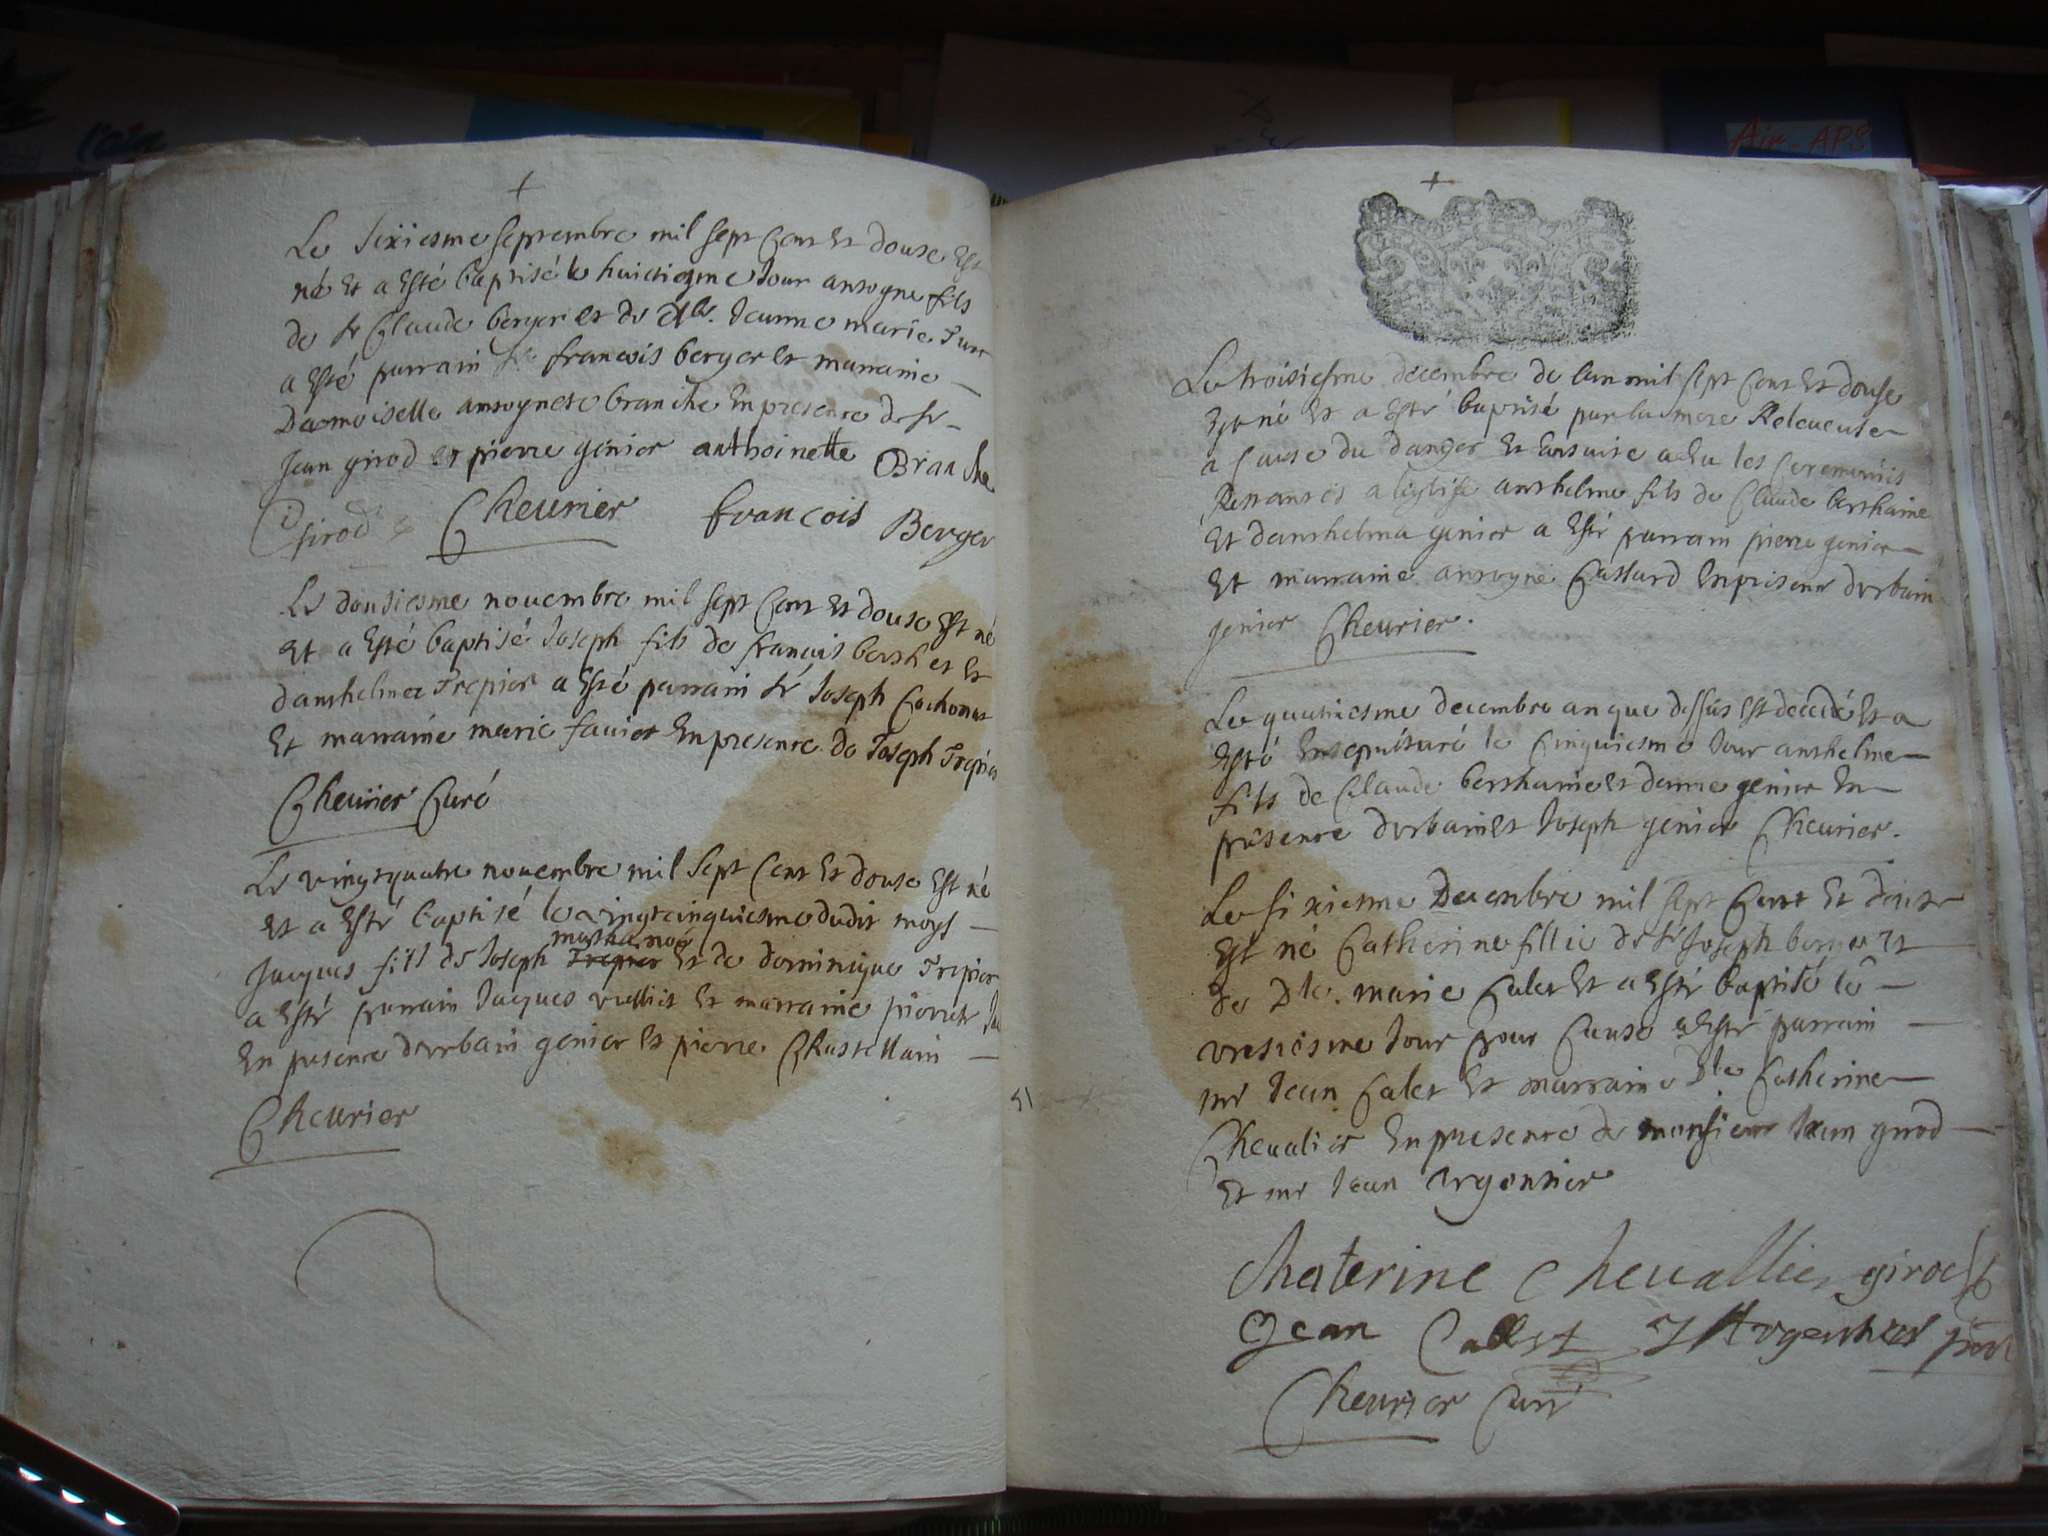 Le sixiesme septembre mil sept cent et douse est
né et a esté baptisé le huictiesme jour antoyne fils
de sr Claude berger et de dlle. Jeanne marie
a esté parrain sr francois berger et marraine
Damoiselle antoynete branche en presence de sr
Jean girod et pierre genier anthoinette Branche
girod Cheurier francois Berger
Le dousiesme nouembre mil sept cent et douse est né
et a esté baptisé Joseph fils de francois berthet et
danthelma Trepier a esté parrain sr Joseph Cochonat
et marraine marie fauier en presence de Joseph Trepier
Cheurier Curé
Le vingtquatre nouembre mil sept cent et douse est né
et a esté baptisé le vingtcinquiesme dudit moys
Jacques fils de Joseph Trepier et de dominique Trepier
a esté parrain Jacques et marraine pierrete
en presence durbain genier et pierre Chastellain
Cheurier
Le troisiesme decembre de lan mil sept cent et douse
est né et a esté baptisé par la mere Releueuse
a cause du danger et ensuite a eu les ceremonies
a leglise anthelme fils de Claude berthaine
et danthelma genier a esté parrain pierre genier
et marraine antoyne Cassard en presence durbain
genier Cheurier.
Le quatriesme decembre an que dessus est decedé et a
esté ensepulturé le cinquiesme jour anthelme
fils de Claude berthaine et danne genier en
presence durbain et Joseph genier Cheurier.
Le sixiesme Decembre mil sept cent et douse
est né Catherine fillie de sr Joseph berger et
de Dlle. marie Calet et a esté baptisé le
vnsiesme jour pour cause a esté parrain
mr Jean Calet et marraine Dlle Catherine
Cheualier en presence de monsieur Jean girod
et mr Jean Argentier
Chaterine Cheuallier girod
Jean Callet J Argentier
Cheurier Curé
51
l'ain
Air-APS